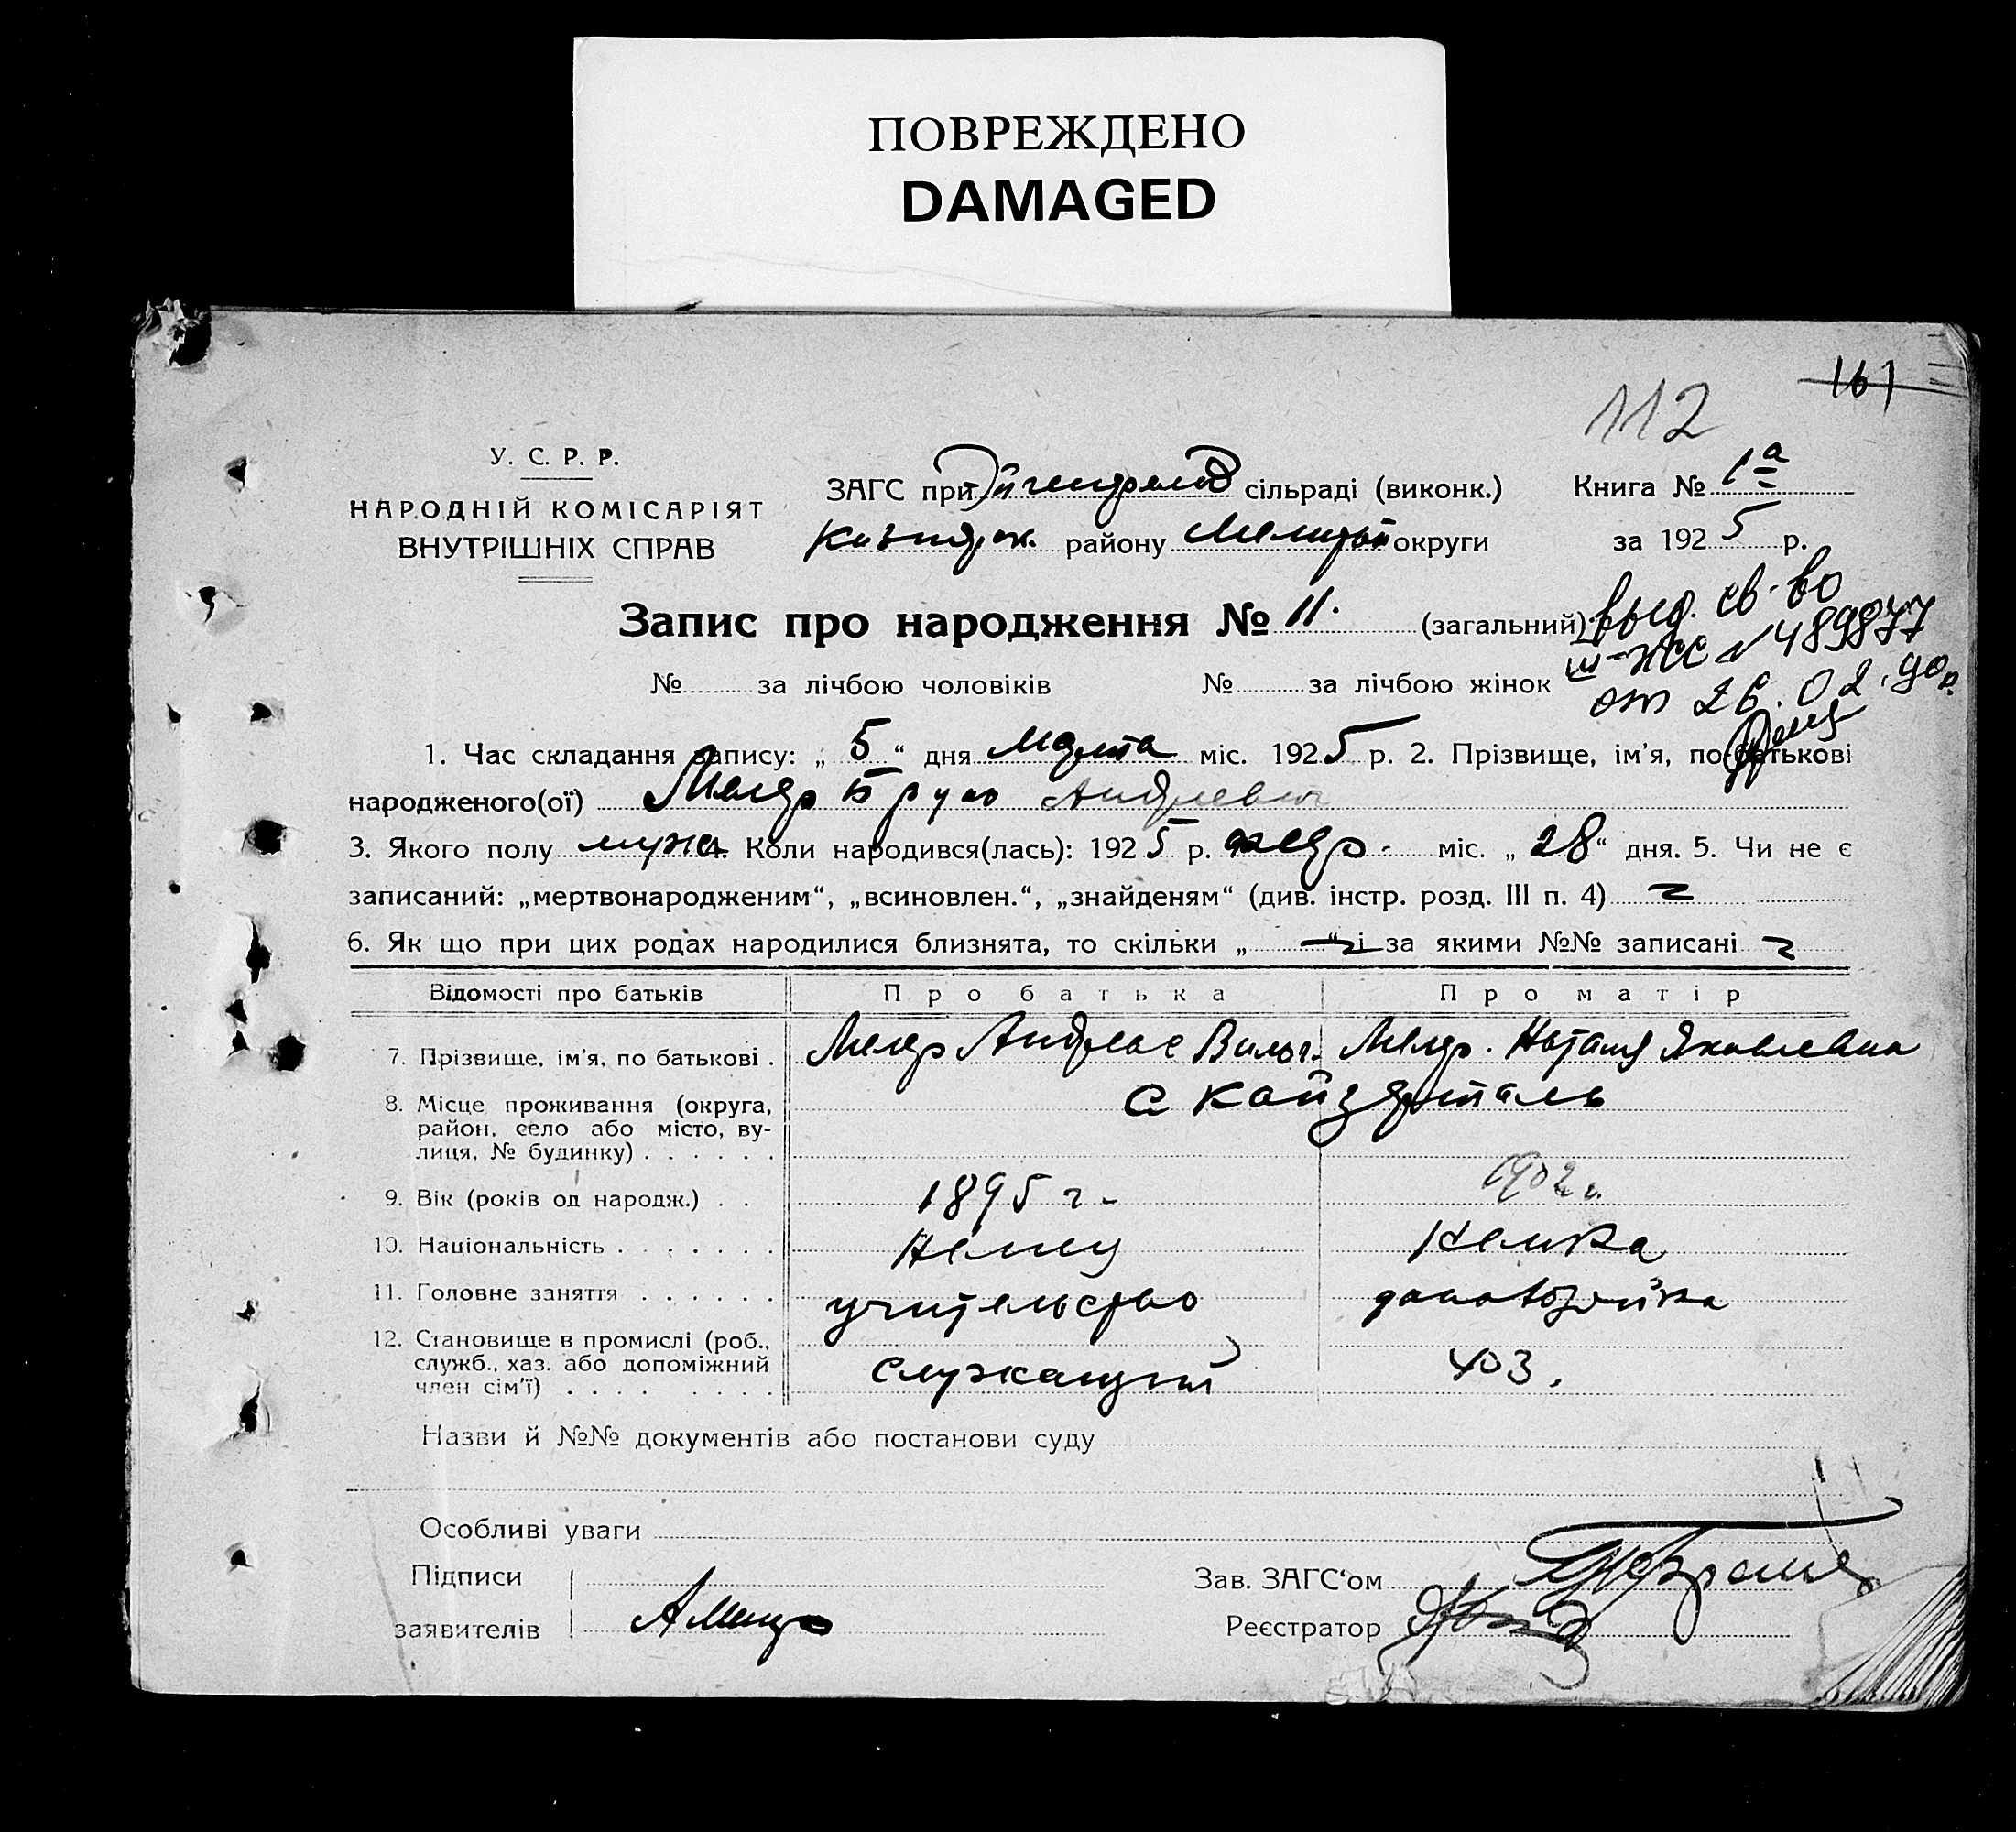 ПОВРЕЖДЕНО
DAMAGED
161
112
У. С. Р. Р.
НАРОДНІЙ КОМІСАРІЯТ
ВНУТРІШНІХ СПРАВ
ЗАГС при сільраді (виконк.)
району округи
Книга № 1а
за 1925 р.
Запис про народження № 11. (загальний)
№ за лічбою чоловіків № за лічбою жінок
выд. св-во
III-ЖС № 489877
от 26.02.90г.
1. Час складання запису: „ 5 “ дня Марта міс. 1925 р. 2. Прізвище, ім'я, по батькові
народженого(ої) Меер Бруно Андреевич
3. Якого полу мужс. Коли народився(лась): 1925 р. февр. міс. „ 28 “ дня. 5. Чи не є
записаний: „мертвонародженим“, „всиновлен.“, „знайденям“ (див. інстр. розд. III п. 4)
6. Як що при цих родах народилися близнята, то скільки „ “ і за якими №№ записані
Відомості про батьків Про батька Про матір
7. Прізвище, ім'я, по батькові . Меер Андреас Вильг. Меер. Наталя Яковлевна
8. Місце проживання (округа, район, село або місто, вулиця, № будинку) . . . . . . с Кайзерталь
9. Вік (років од народж.) . . 1895 г. 1902 г.
10. Національність . . . . . . . Немец Немка
11. Головне заняття . . . . . . учительство домохозяйка
12. Становище в промислі (роб., служб., хаз. або допоміжний член сім'ї) . . . . . . . . служащий
Назви й №№ документів або постанови суду
Особливі уваги
Підписи
заявителів
Зав. ЗАГС'ом
Реєстратор